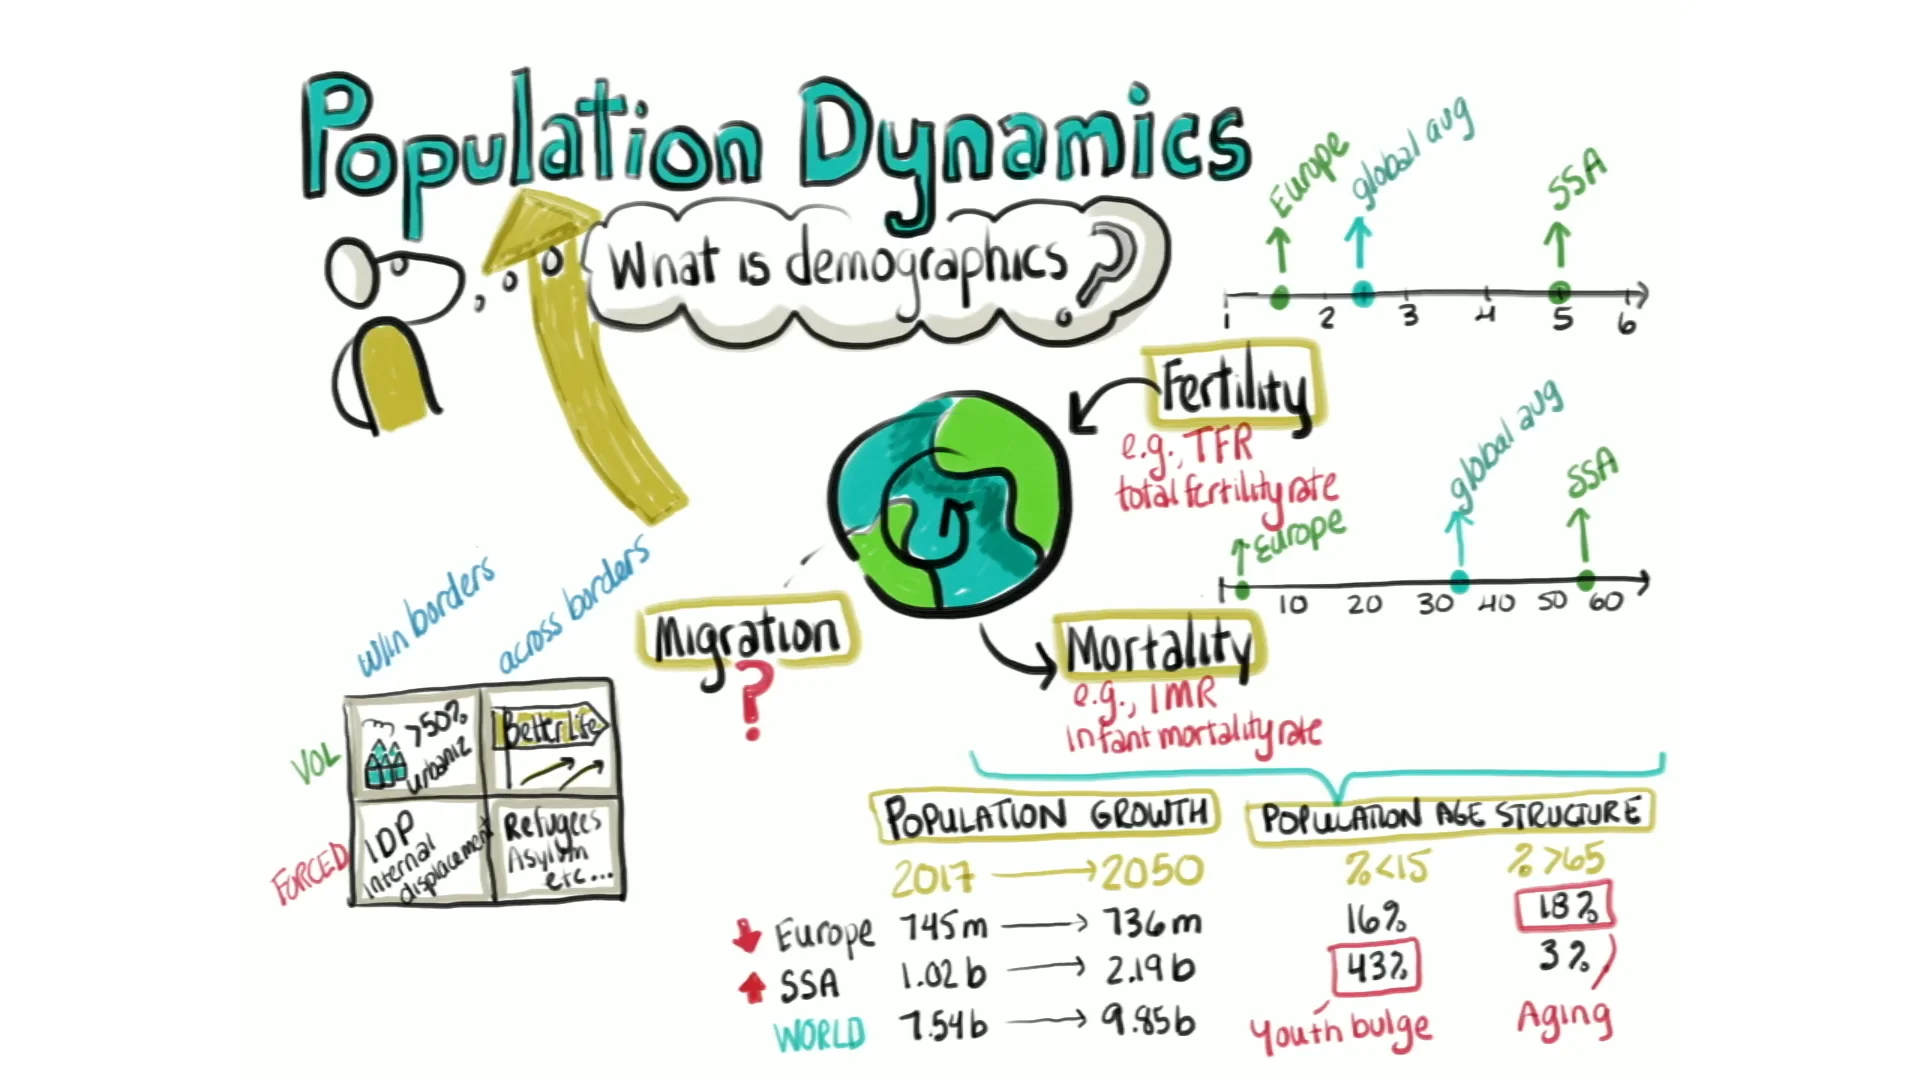 Population Dynamics
What is demographics?
Europe
global avg
SSA
1 2 3 4 5 6
Fertility
e.g., TFR
total fertility rate
global avg
SSA
Europe
10 20 30 40 50 60
w/in borders
across borders
Migration
?
Mortality
e.g., IMR
infant mortality rate
VOL
>50%
urbaniz
Better Life
FORCED
IDP
internal
displacement
Refugees
Asylum
etc...
POPULATION GROWTH
POPULATION AGE STRUCTURE
2017 → 2050
%<15
%>65
Europe 745m → 736m
16%
18%
SSA 1.02b → 2.19b
43%
3%
WORLD 7.54b → 9.85b
Youth bulge
Aging